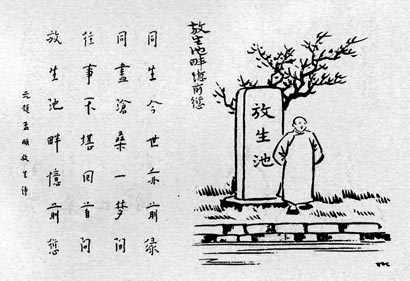 放生池畔憶前愆
放生池
TK
同生今世亦前緣
同盡滄桑一夢間
往事不堪回首問
放生池畔憶前愆
元趙孟頫放生詩